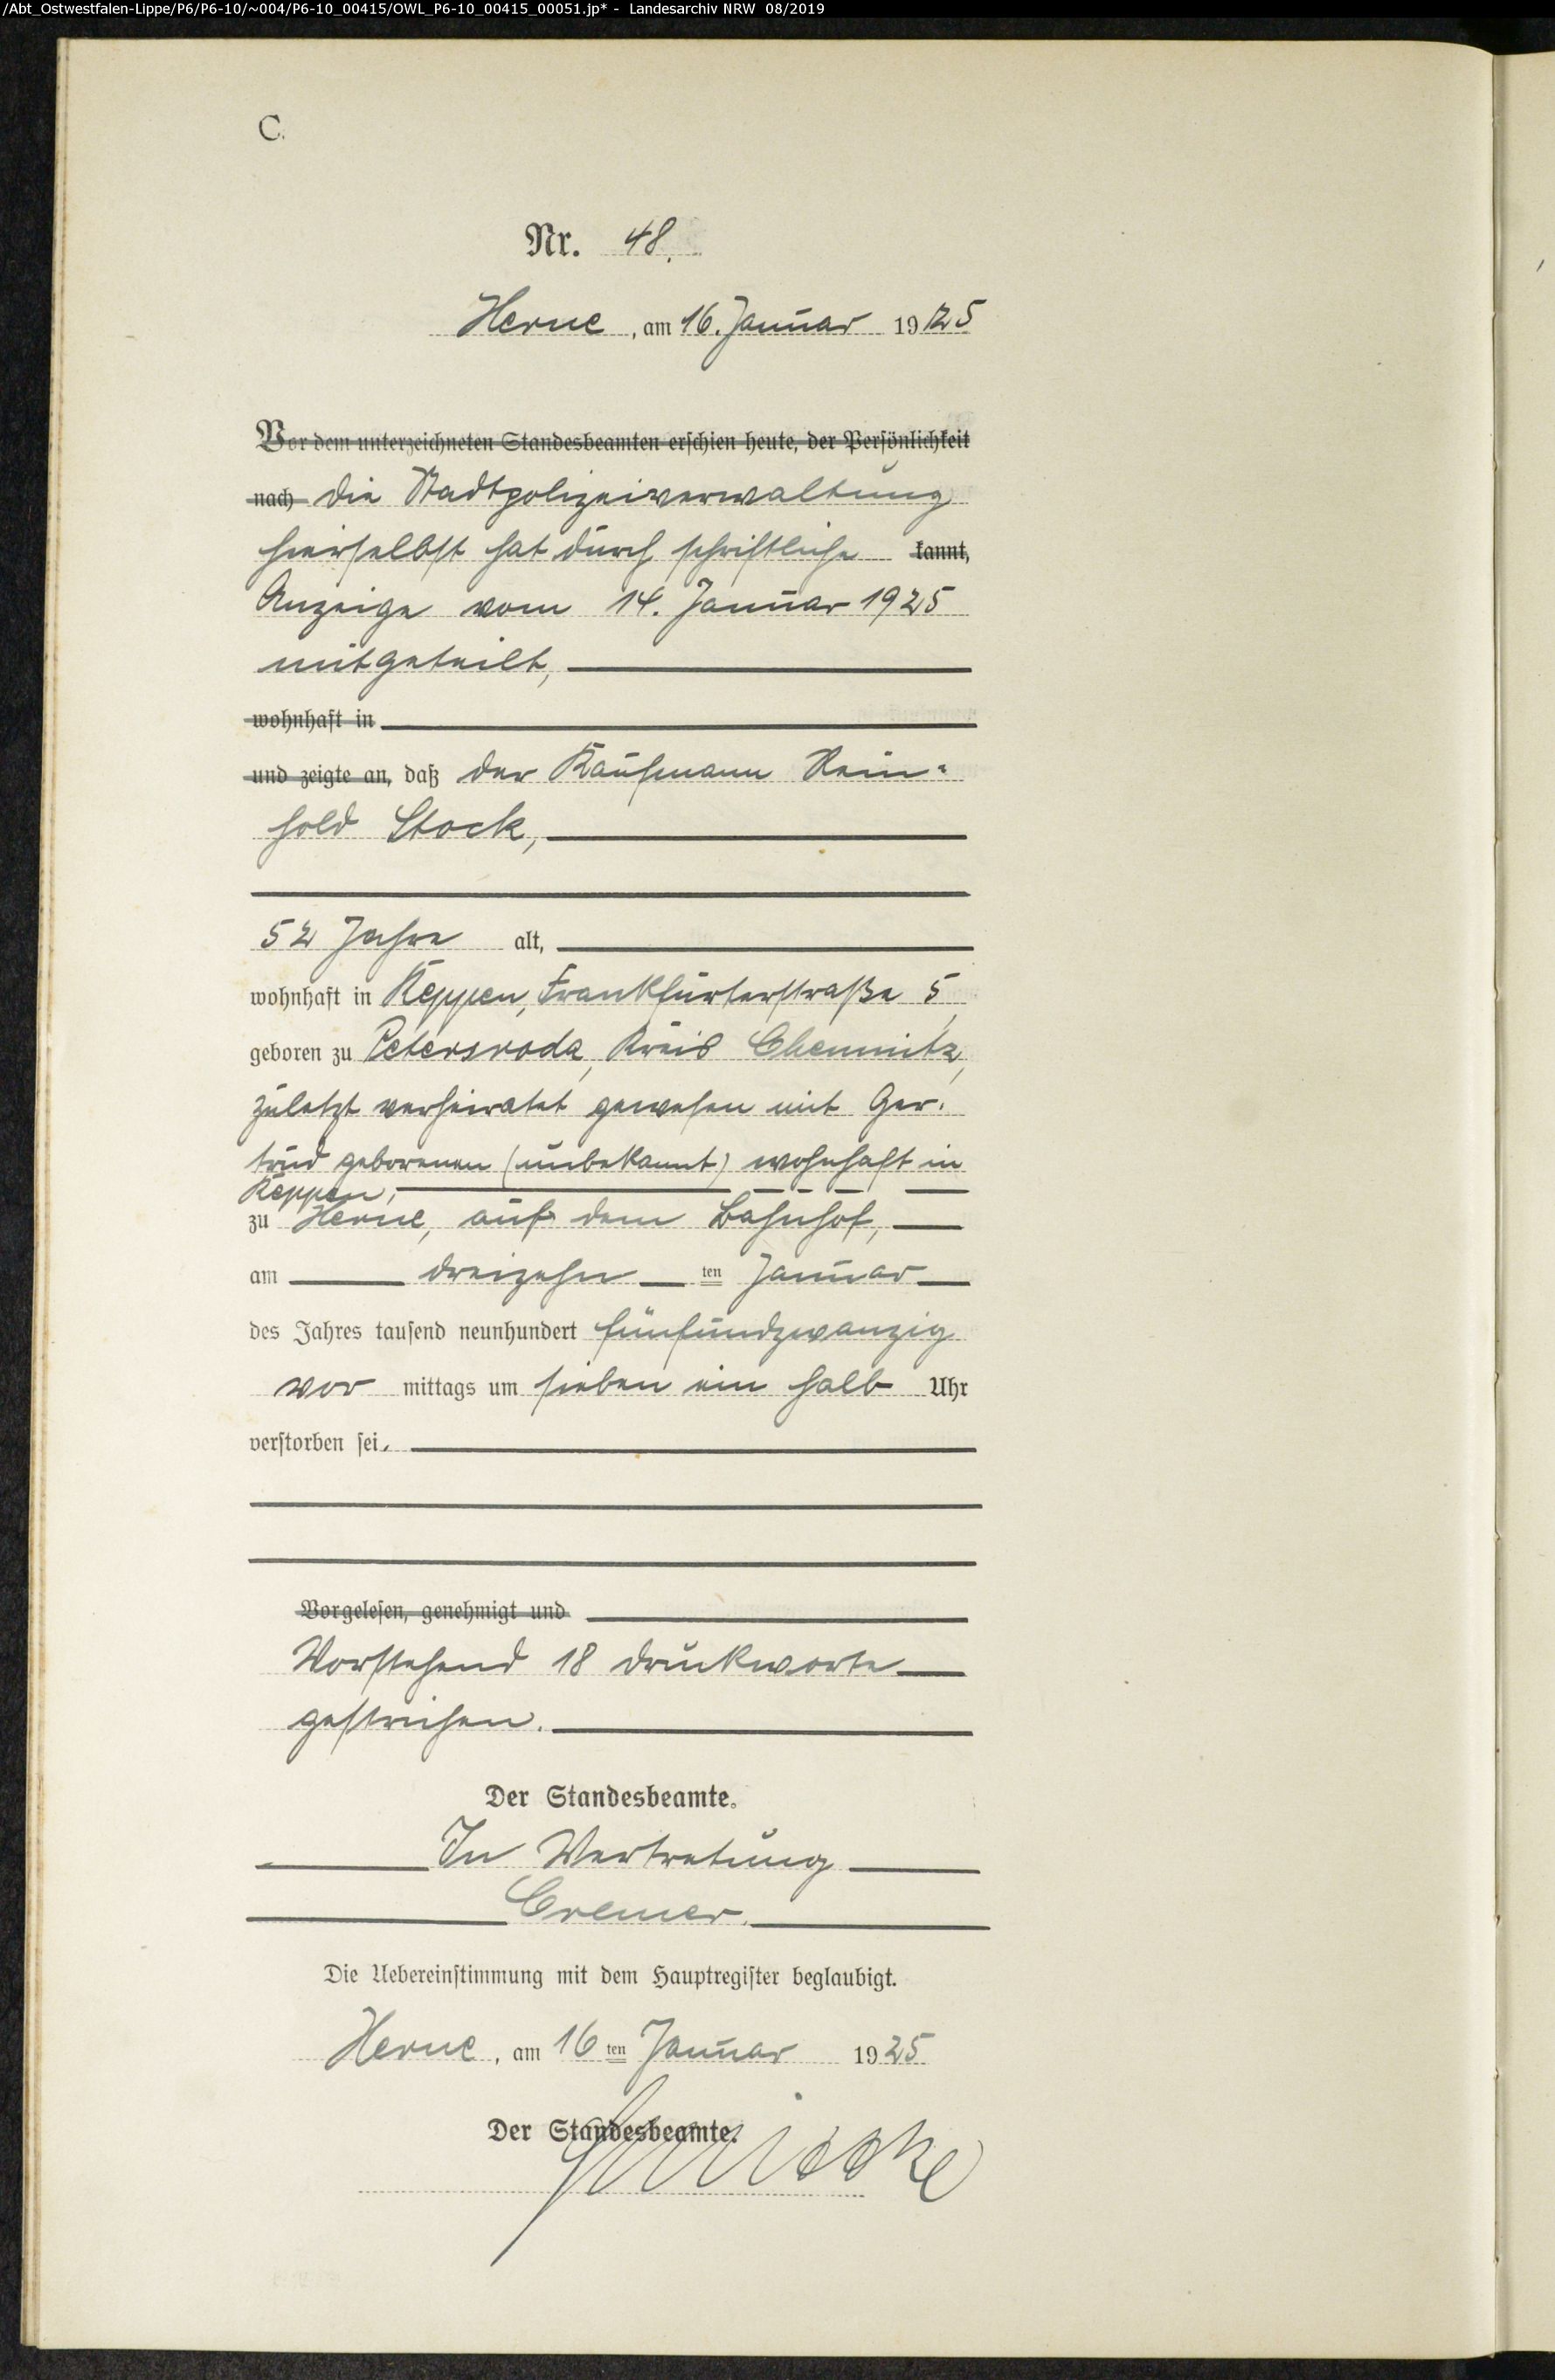 /Abt_Ostwestfalen-Lippe/P6/P6-10/~004/P6-10_00415/OWL_P6-10_00415_00051.jp* - Landesarchiv NRW 08/2019
C.
Nr. 48.
Herne, am 16. Januar 1925
Vor dem unterzeichneten Standesbeamten erschien heute, der Persönlichkeit
nach die Stadtpolizeiverwaltung
hierselbst hat durch schriftliche kannt,
Anzeige vom 14. Januar 1925
mitgeteilt,
wohnhaft in
und zeigte an, daß der Kaufmann Rein-
hold Stock,
52 Jahre alt,
wohnhaft in Keppen, Frankfurterstraße 5,
geboren zu Petersroda, Kreis Chemnitz,
zuletzt verheiratet gewesen mit Ger-
trud geborenen (unbekannt) wohnhaft in
Keppen,
zu Herne, auf dem Bahnhof,
am dreizehn ten Januar
des Jahres tausend neunhundert fünfundzwanzig
vor mittags um sieben ein halb Uhr
verstorben sei.
Vorgelesen, genehmigt und
Vorstehend 18 Druckworte
gestrichen.
Der Standesbeamte.
In Vertretung
Cremer.
Die Uebereinstimmung mit dem Hauptregister beglaubigt.
Herne, am 16 ten Januar 1925
Der Standesbeamte.